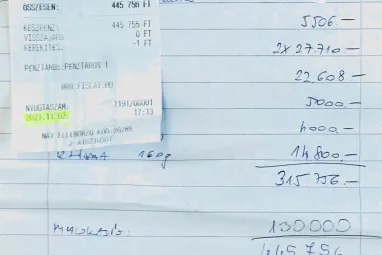 ÖSSZESEN: 445 756 FT
KÉSZPÉNZ: 445 755 FT
VISSZAJÁRÓ 0 FT
KEREKÍTÉS: -1 FT
PÉNZTÁROS:PÉNZTÁROS 1
NYUGTASZÁM: 1191/00001
2021.11.02 12:13
NAV ELLENŐRZŐ KÓD:
5506.-
2x27.710-
22.608-
5000.-
4000.-
160g 14.800.-
315.756.-
130000
445.756